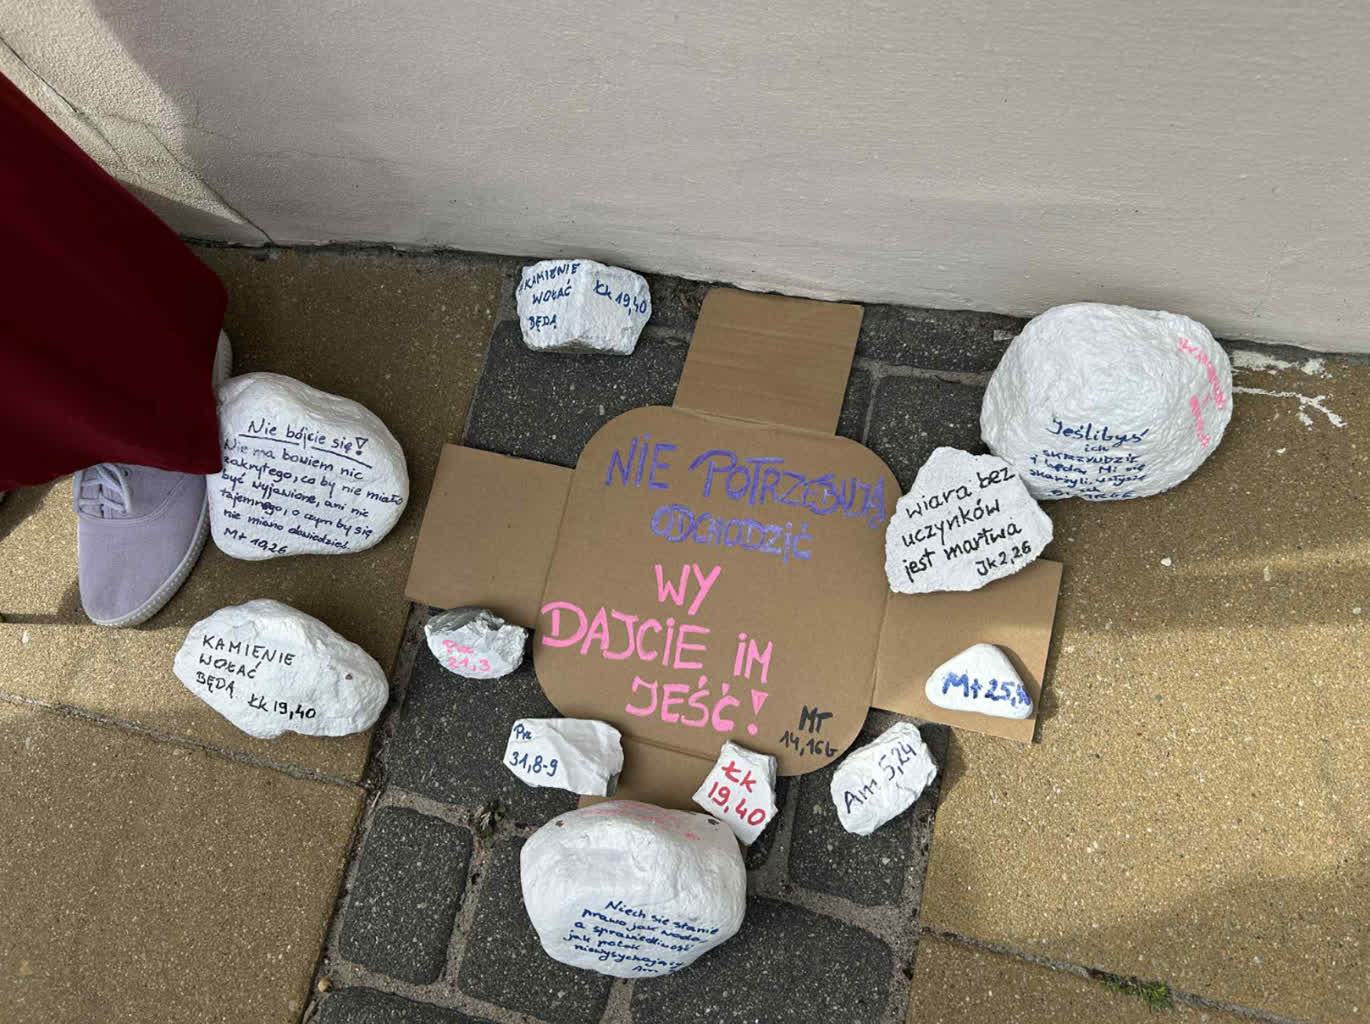 KAMIENIE
WOŁAĆ
BĘDĄ
Łk 19,40
Nie bójcie się!
Nie ma bowiem nic
zakrytego, co by nie miało
być wyjawione, ani nic
tajemnego, o czym by się
nie miano dowiedzieć.
Mt 10,26
NIE POTRZEBUJĄ
ODCHODZIĆ
WY
DAJCIE IM
JEŚĆ!
MT
14,16b
Jeślibyś
ich
SKRZYWDZIŁ
i będą Mi się
skarżyli, usłyszę
wiara bez
uczynków
jest martwa
Jk 2,26
KAMIENIE
WOŁAĆ
BĘDĄ Łk 19,40
21,3
Mt 25,
Prz
31,8-9
Łk
19,40
Am 5,24
Niech się stanie
prawo jak woda
a sprawiedliwość
jak potok
niewysychający
Am